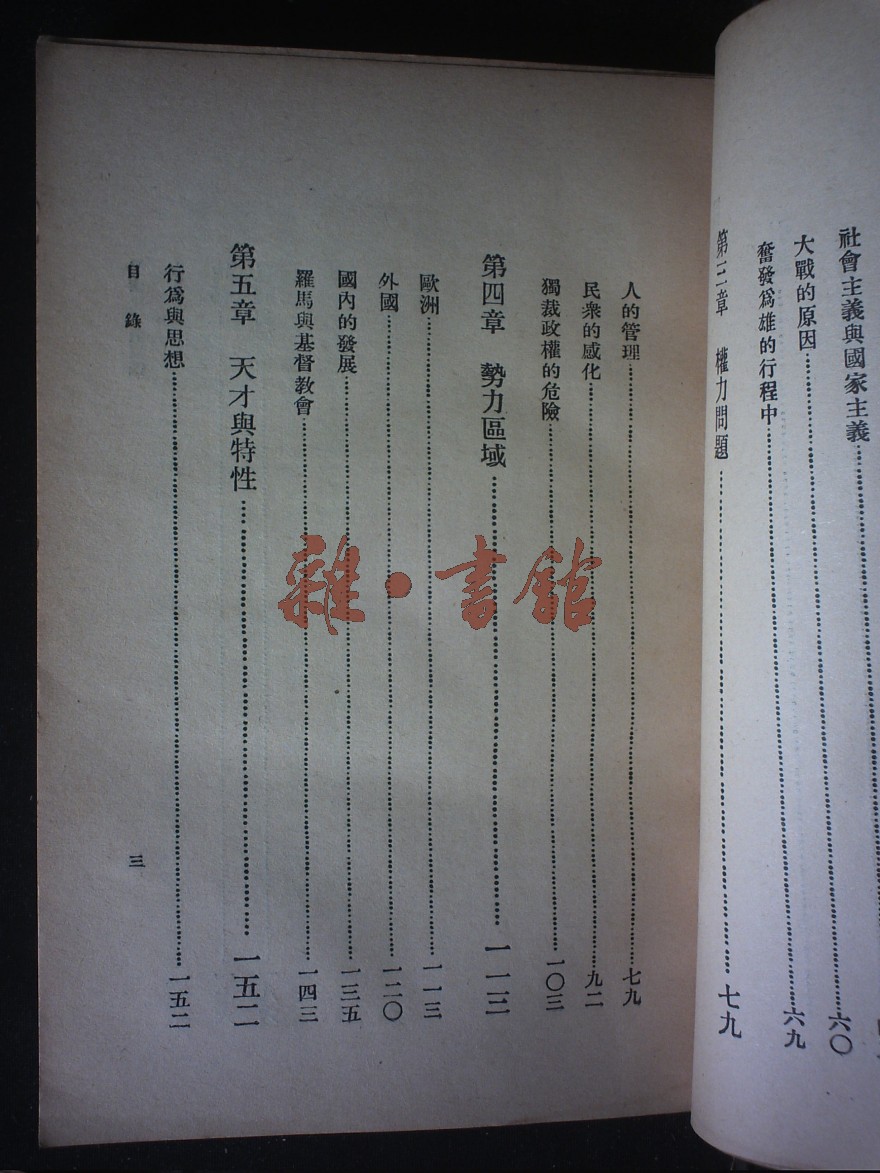 社會主義與國家主義
大戰的原因……六〇
奮發爲雄的行程中……六九
第三章　權力問題……七九
人的管理……七九
民衆的感化……九二
獨裁政權的危險……一〇三
第四章　勢力區域……一一三
歐洲……一一三
外國……一二〇
國內的發展……一三五
羅馬與基督教會……一四三
第五章　天才與特性……一五二
行爲與思想……一五二
目錄
三
雜·書館